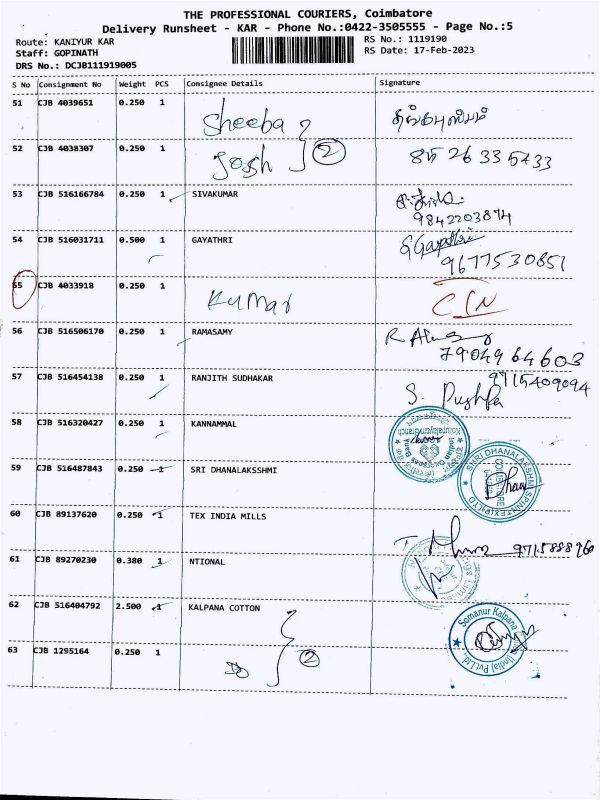 THE PROFESSIONAL COURIERS, Coimbatore
Delivery Runsheet - KAR - Phone No.:0422-3505555 - Page No.:5
Route: KANIYUR KAR
RS No.: 1119190
Staff: GOPINATH
RS Date: 17-Feb-2023
DRS No.: DCJB111919005
S No Consignment No Weight PCS Consignee Details Signature
51 CJB 4039651 0.250 1 Sheeba
52 CJB 4038307 0.250 1 Josh 2 85 26 33 5433
53 CJB 516166784 0.250 1 SIVAKUMAR
9842203874
54 CJB 516031711 0.500 1 GAYATHRI G Gayathri
9677530851
55 CJB 4033918 0.250 1 Kumar
56 CJB 516506170 0.250 1 RAMASAMY R
7904964603
57 CJB 516454138 0.250 1 RANJITH SUDHAKAR 9715409094
S. Pushpa
58 CJB 516320427 0.250 1 KANNAMMAL Indian Overseas Bank
59 CJB 516487843 0.250 1 SRI DHANALAKSSHMI SHRI DHANALAKSHMI SPINTEX (P) LTD COIMBATORE
60 CJB 89137620 0.250 1 TEX INDIA MILLS 9715888960
61 CJB 89270230 0.380 1 NTIONAL
62 CJB 516404792 2.500 1 KALPANA COTTON Somanur Kalpana (India) Pvt.Ltd.
63 CJB 1295164 0.250 1 2